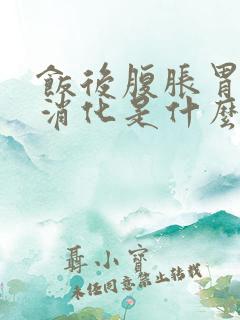 飯後腹脹胃
消化是什麼
聶小寶
未經同意禁止转載